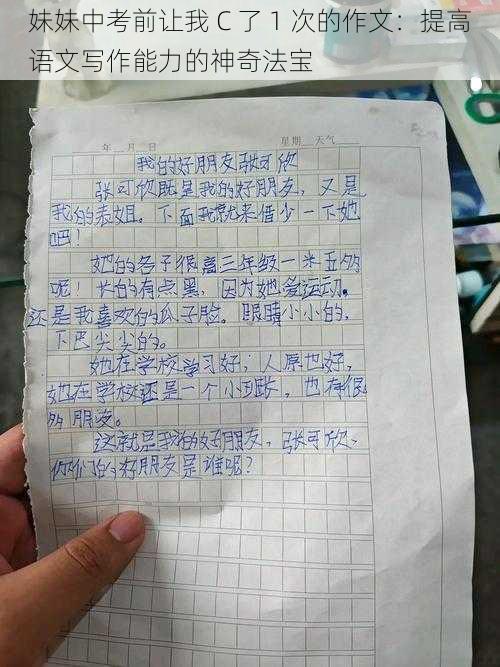 妹妹中考前让我 C 了 1 次的作文：提高
语文写作能力的神奇法宝
年 月 日 星期 天气
我的好朋友张可欣
张可欣既是我的好朋友，又是
我的表姐。下面我就来借少一下她
吧！
她的各子很高三年级一米五多
呢！长的有点黑，因为她爱运动。
还是我喜欢的瓜子脸。眼睛小小的，
下巴尖尖的。
她在学校学习好；人原也好，
她在学校还是一个小班长，也有很
多朋友。
这就是我的好朋友，张可欣、
你们的好朋友是谁呢？